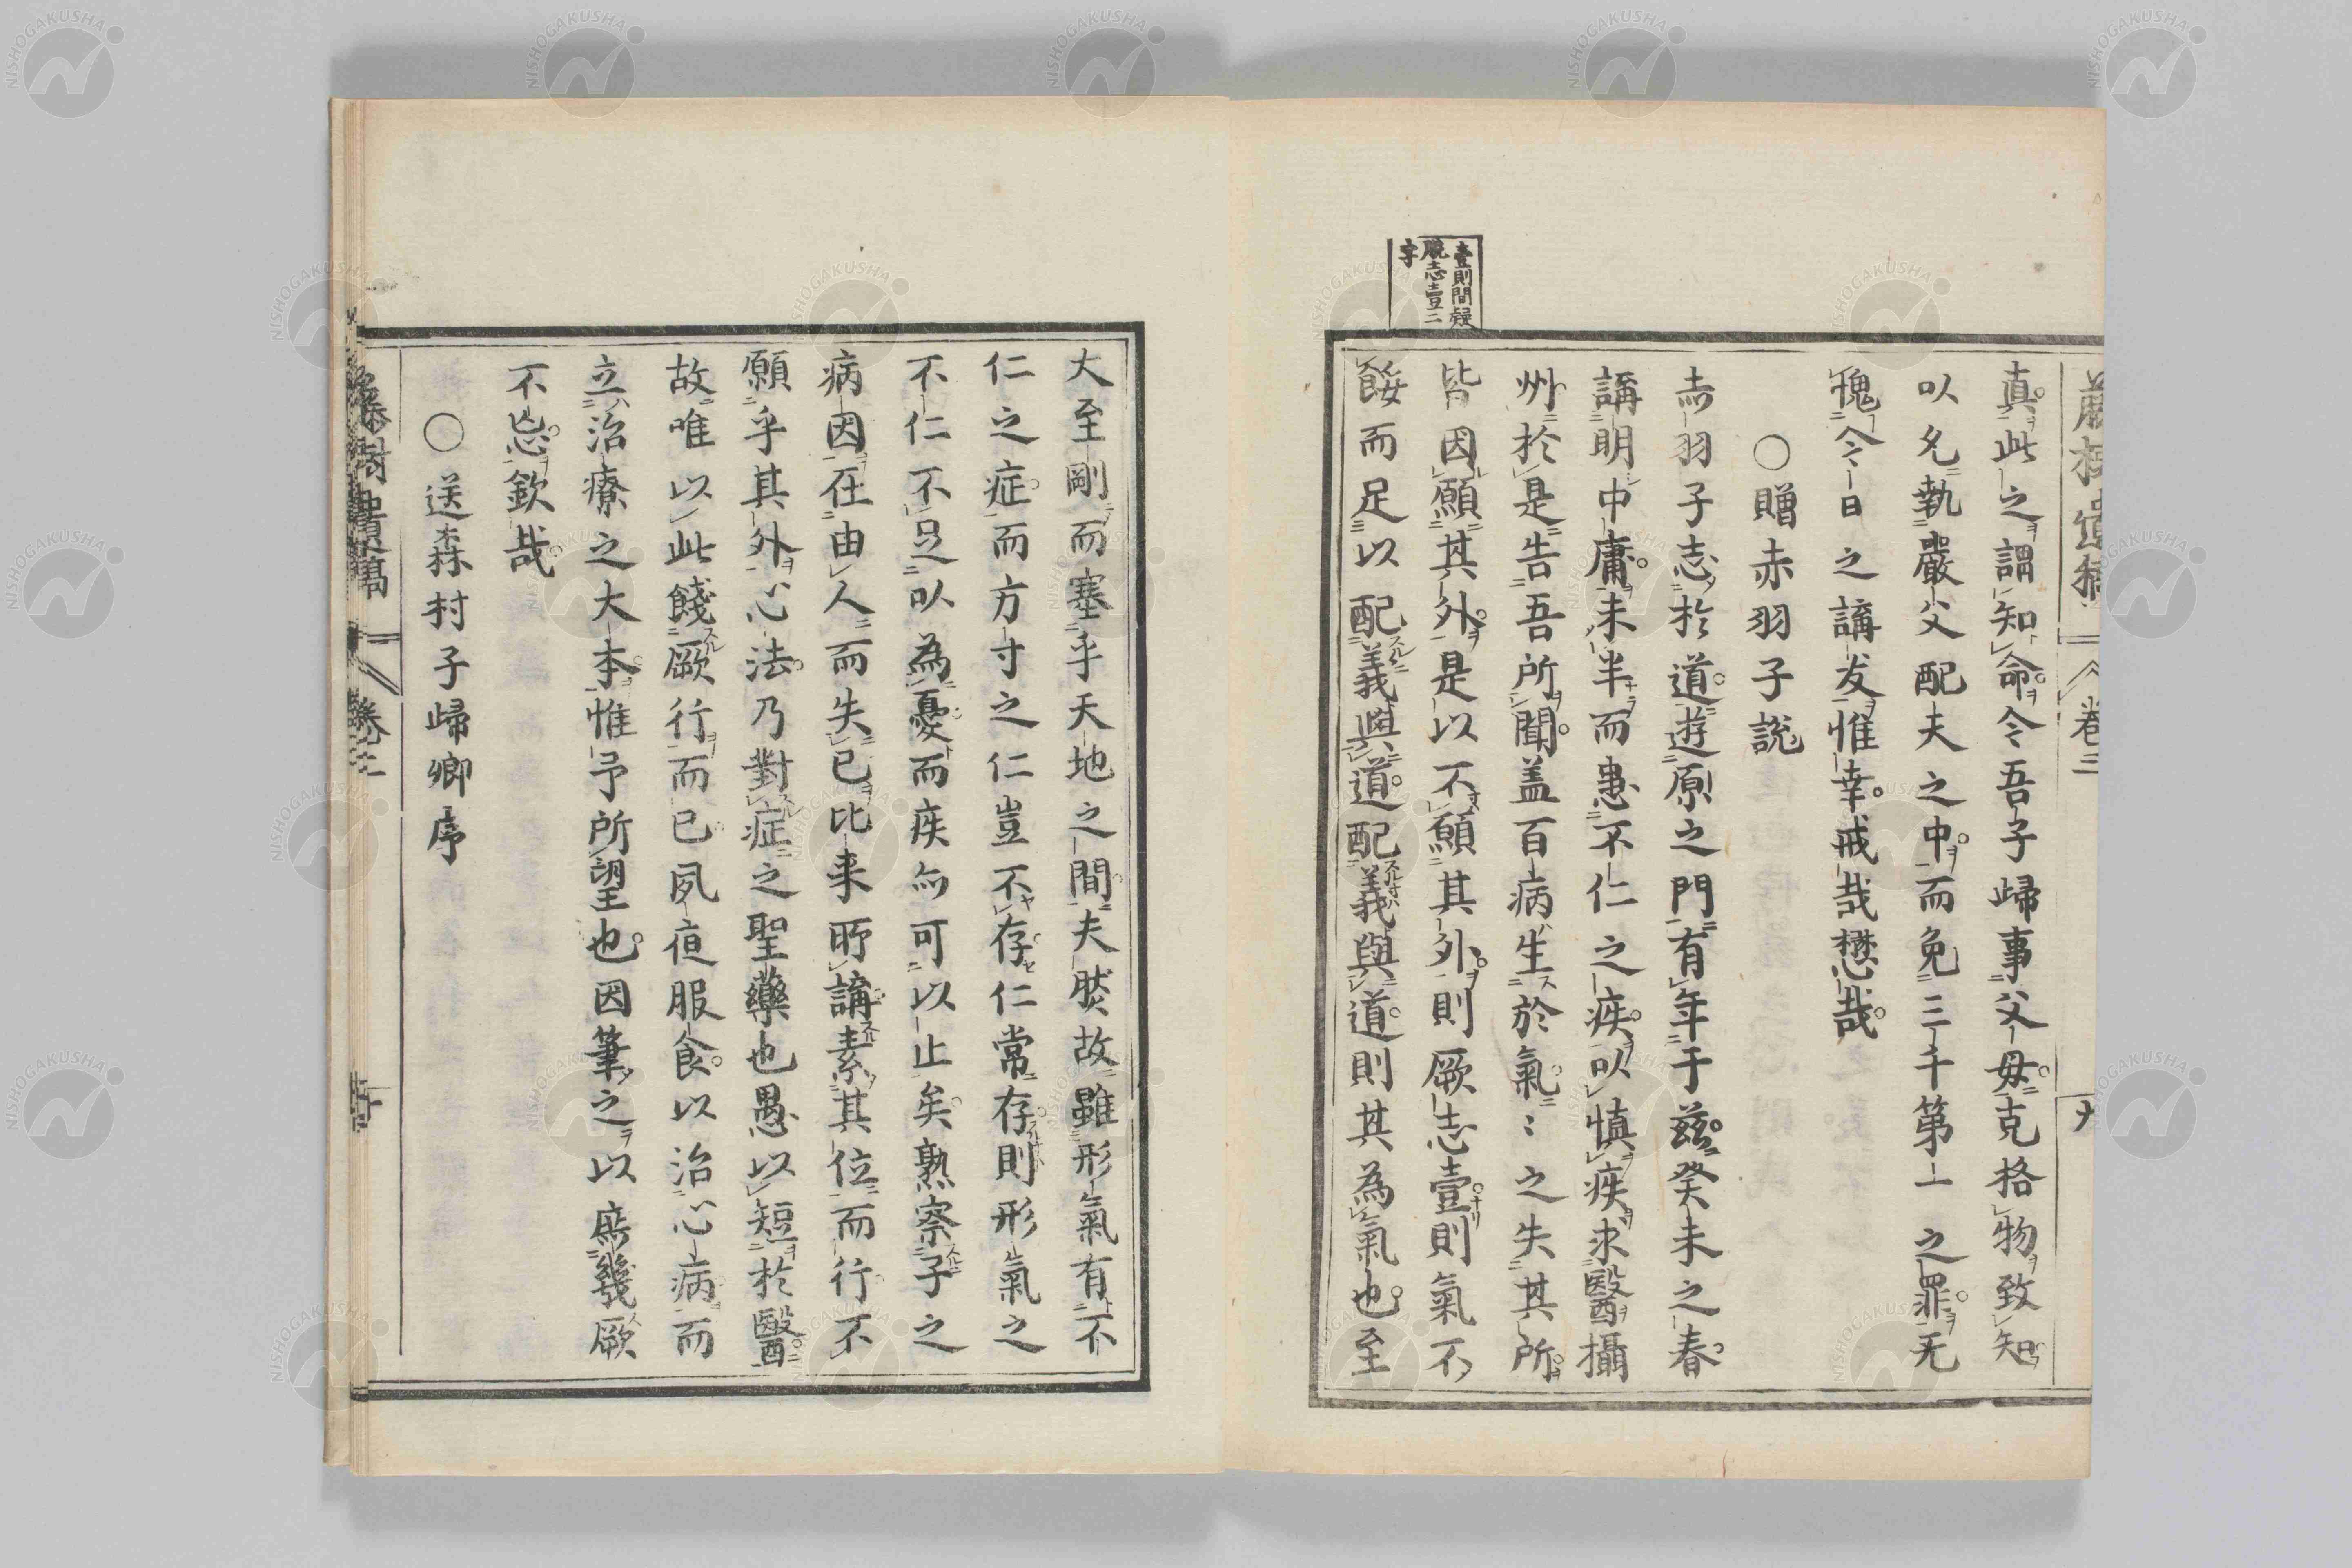 真此之謂知命今吾子歸事父母克格物致知
以允執嚴父配天之中而免三千第一之罪无
愧今日之講友惟幸戒哉懋哉
○贈赤羽子説
赤羽子志於道遊原之門有年于茲癸未之春
講明中庸未半而患不仁之疾以慎疾求醫攝
州於是告吾所聞盖百病生於氣〻之失其所
皆因願其外是以不願其外則厥志壹則氣不
餒而足以配義與道配義與道則其為氣也至
壹則間疑
脱志壹二
字
大至剛而塞乎天地之間夫然故雖形氣有不
仁之症而方寸之仁豈不存仁常存則形氣之
不仁不足以為憂而疾亦可以止矣熟察子之
病因在由人而失已比来所講素其位而行不
願乎其外心法乃對症之聖藥也愚以短於醫
故唯以此餞厥行而已夙夜服食以治心病而
立治療之大本惟予所望也因筆之以庶幾厥
不忘欽哉
○送森村子歸鄉序
藤樹遺稿 卷三